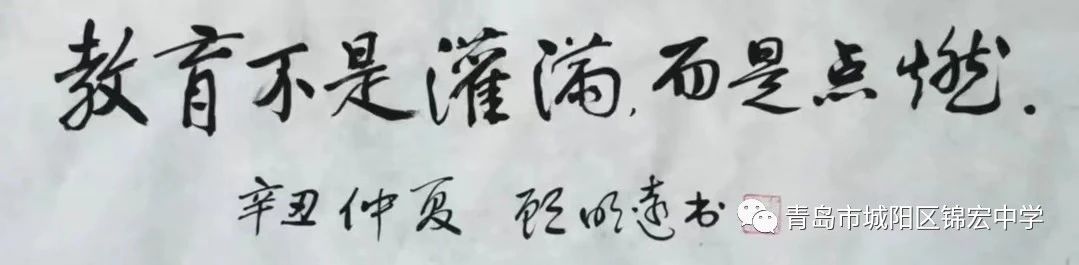 教育不是灌满,而是点燃.
辛丑仲夏 顾明远书 青岛市城阳区锦宏中学